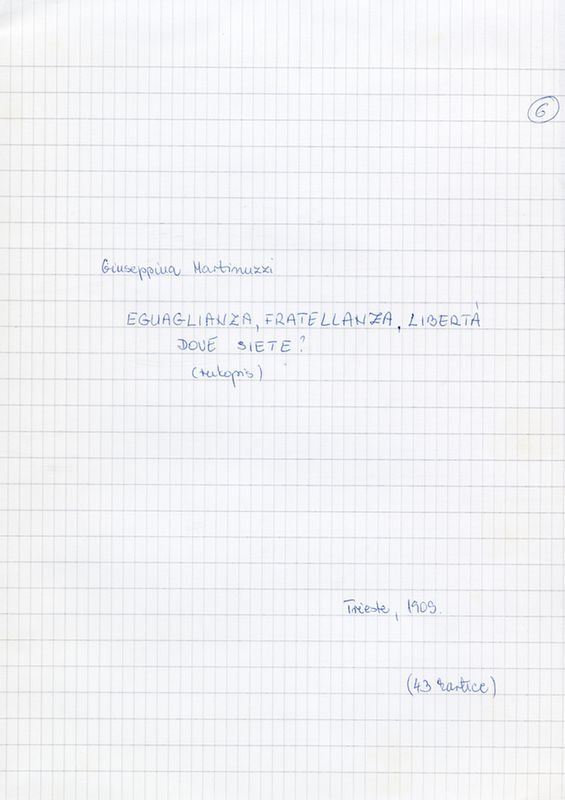 6
Giuseppina Martinuzzi
EGUAGLIANZA, FRATELLANZA, LIBERTÁ
DOVE SIETE?
(rukopis)
Trieste, 1909.
(43 kartice)